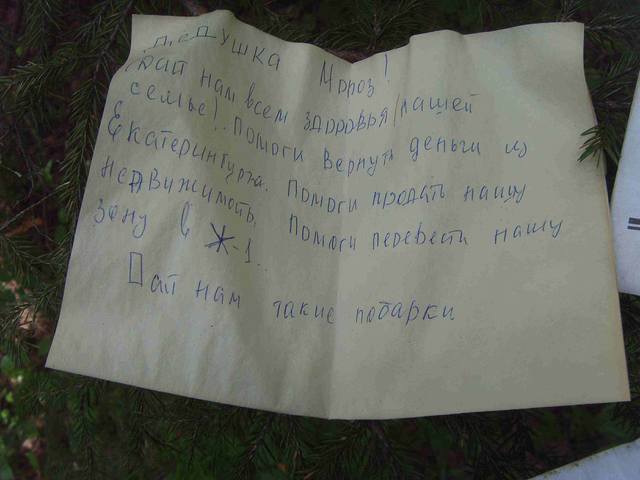 Дедушка Мороз!
Дай нам всем здоровья (нашей
семье). Помоги вернуть деньги из
Екатеринбурга. Помоги продать нашу
недвижимость. Помоги перевести нашу
зону в Ж-1.
Дай нам такие подарки